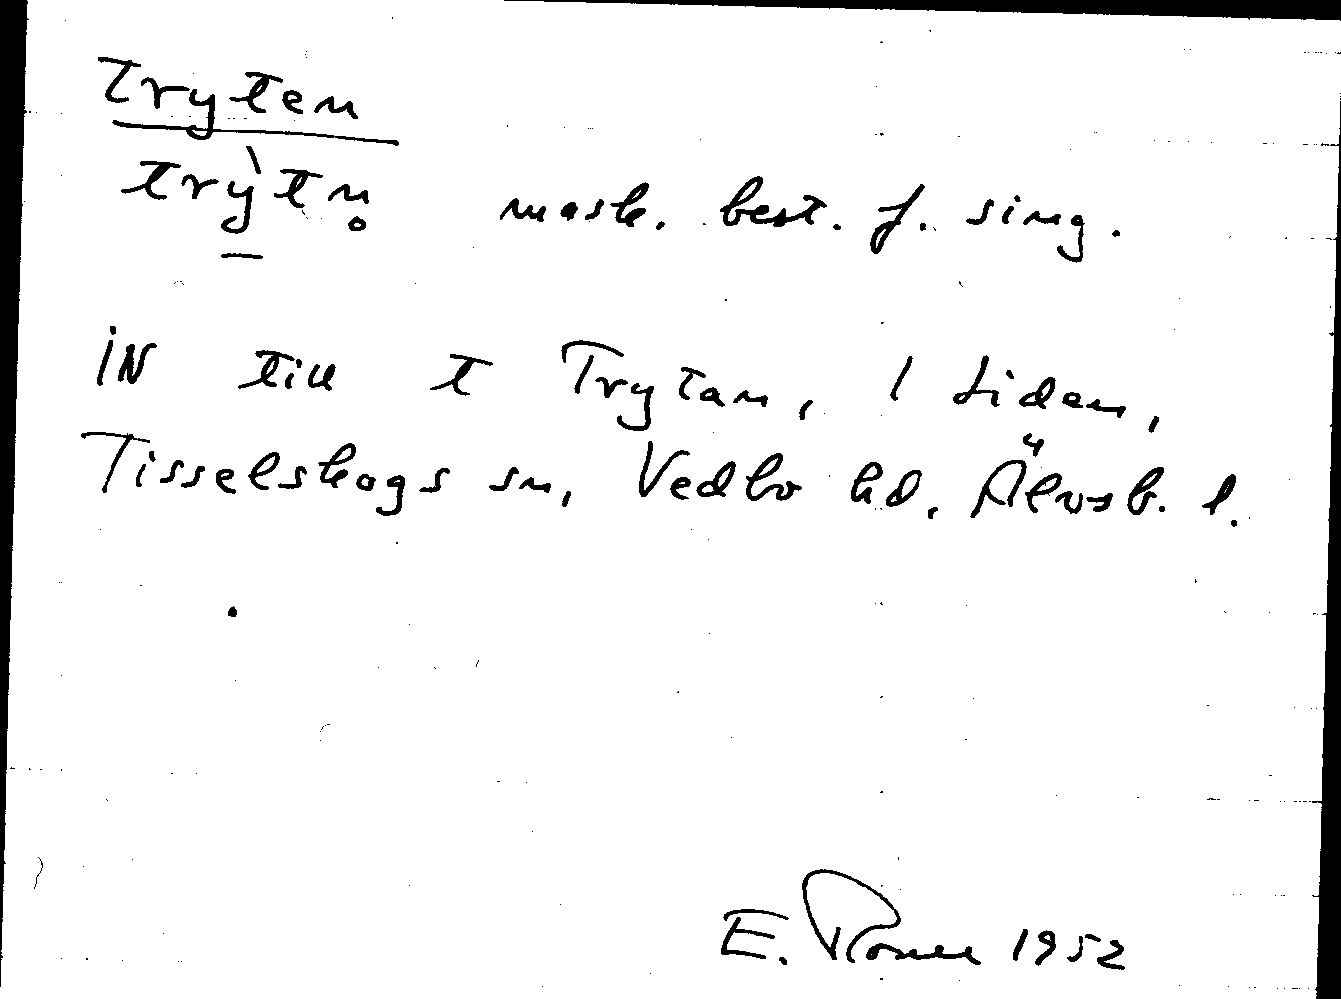 Tryten
trỳtn̥ mask. best. f. sing.
IN till t Trytan, 1 Liden,
Tisselskogs sn, Vedbo hd, Älvsb. l.
E. 1952